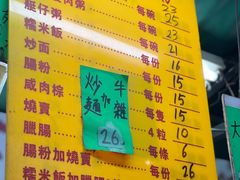 艇仔粥 每碗 23
糯米飯 21
炒面 每份 16
腸粉 每份 15
咸肉粽 15
燒賣 4粒 10
臘腸 每條 6
腸粉加燒賣 每份 26
糯米飯加臘腸
牛雜
加
炒麵
26